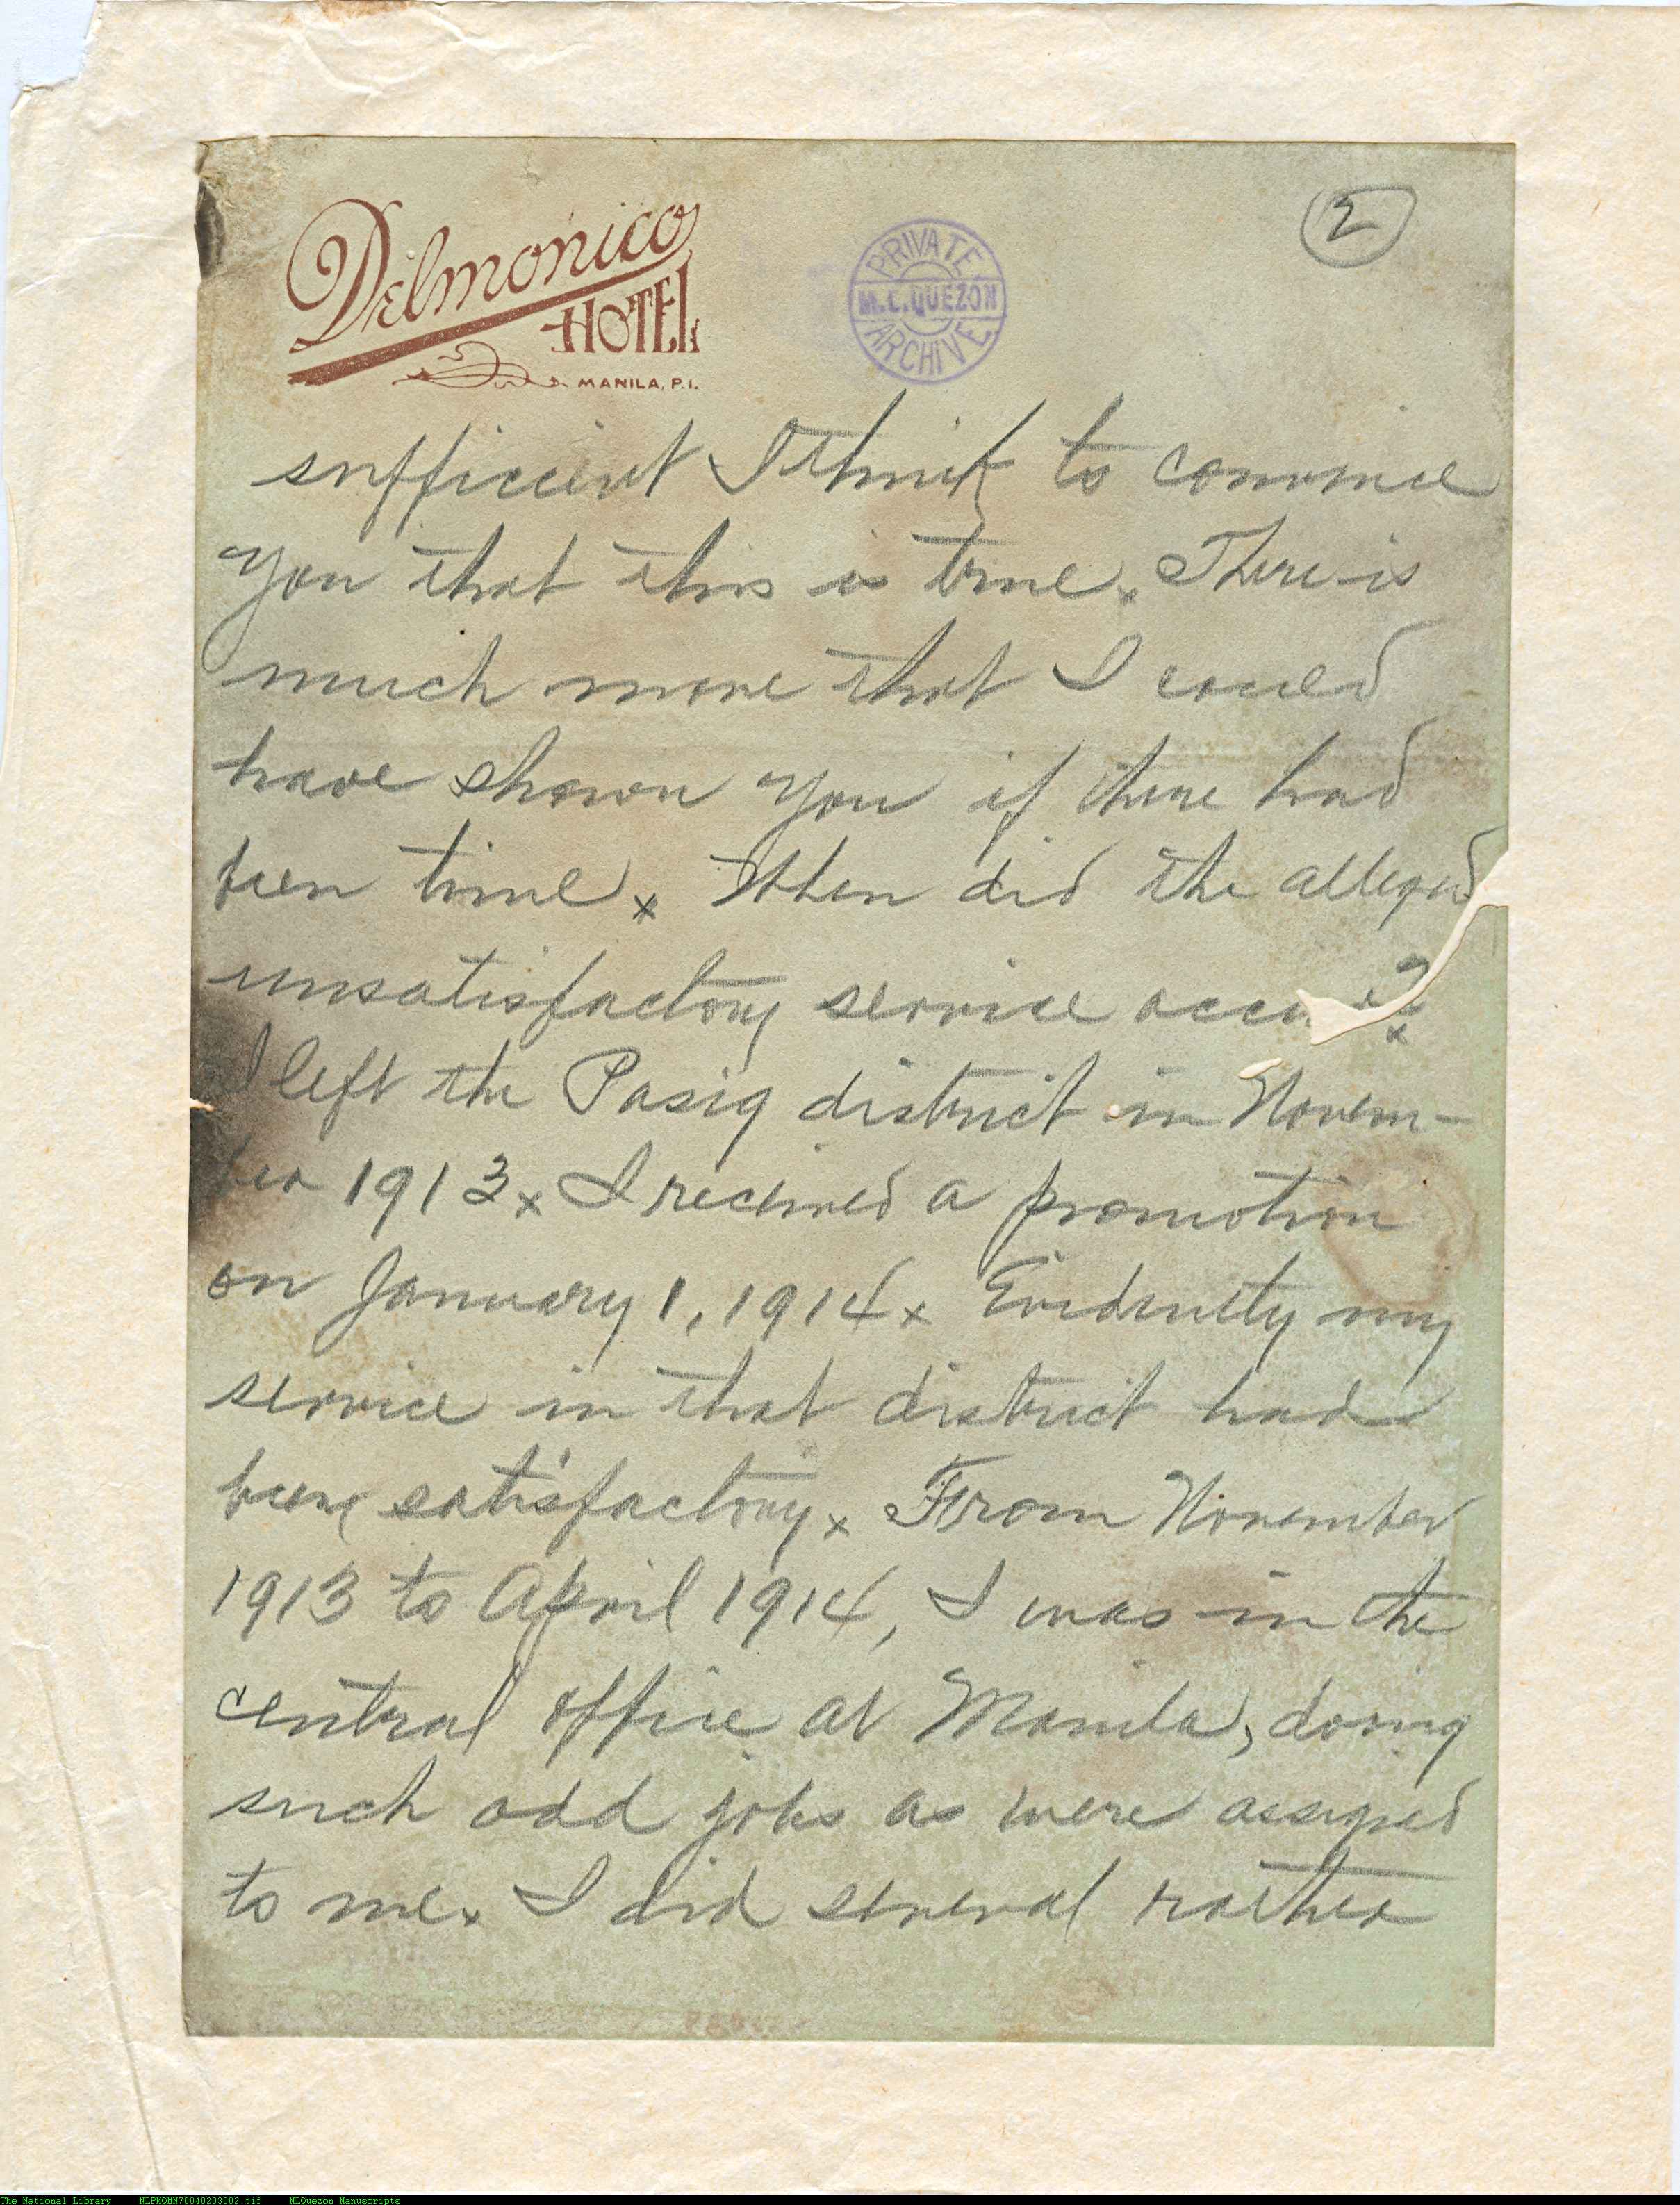 Delmonico
HOTEL
MANILA, P.I.
PRIVATE
M.L.QUEZON
ARCHIVE
2
sufficient I think to convince
you that this is true x There is
much more that I could
have shown you if there had
been time x When did the alleged
unsatisfactory service occur? x
I left the Pasig district in Novem-
ber 1913 x I received a promotion
on January 1, 1914 x Evidently my
service in that district had
been satisfactory x From November
1913 to April 1914, I was in the
central office at Manila, doing
such odd jobs as were assigned
to me x I did several rather
The National Library NLPMQMN70040203002.tif MLQuezon Manuscripts